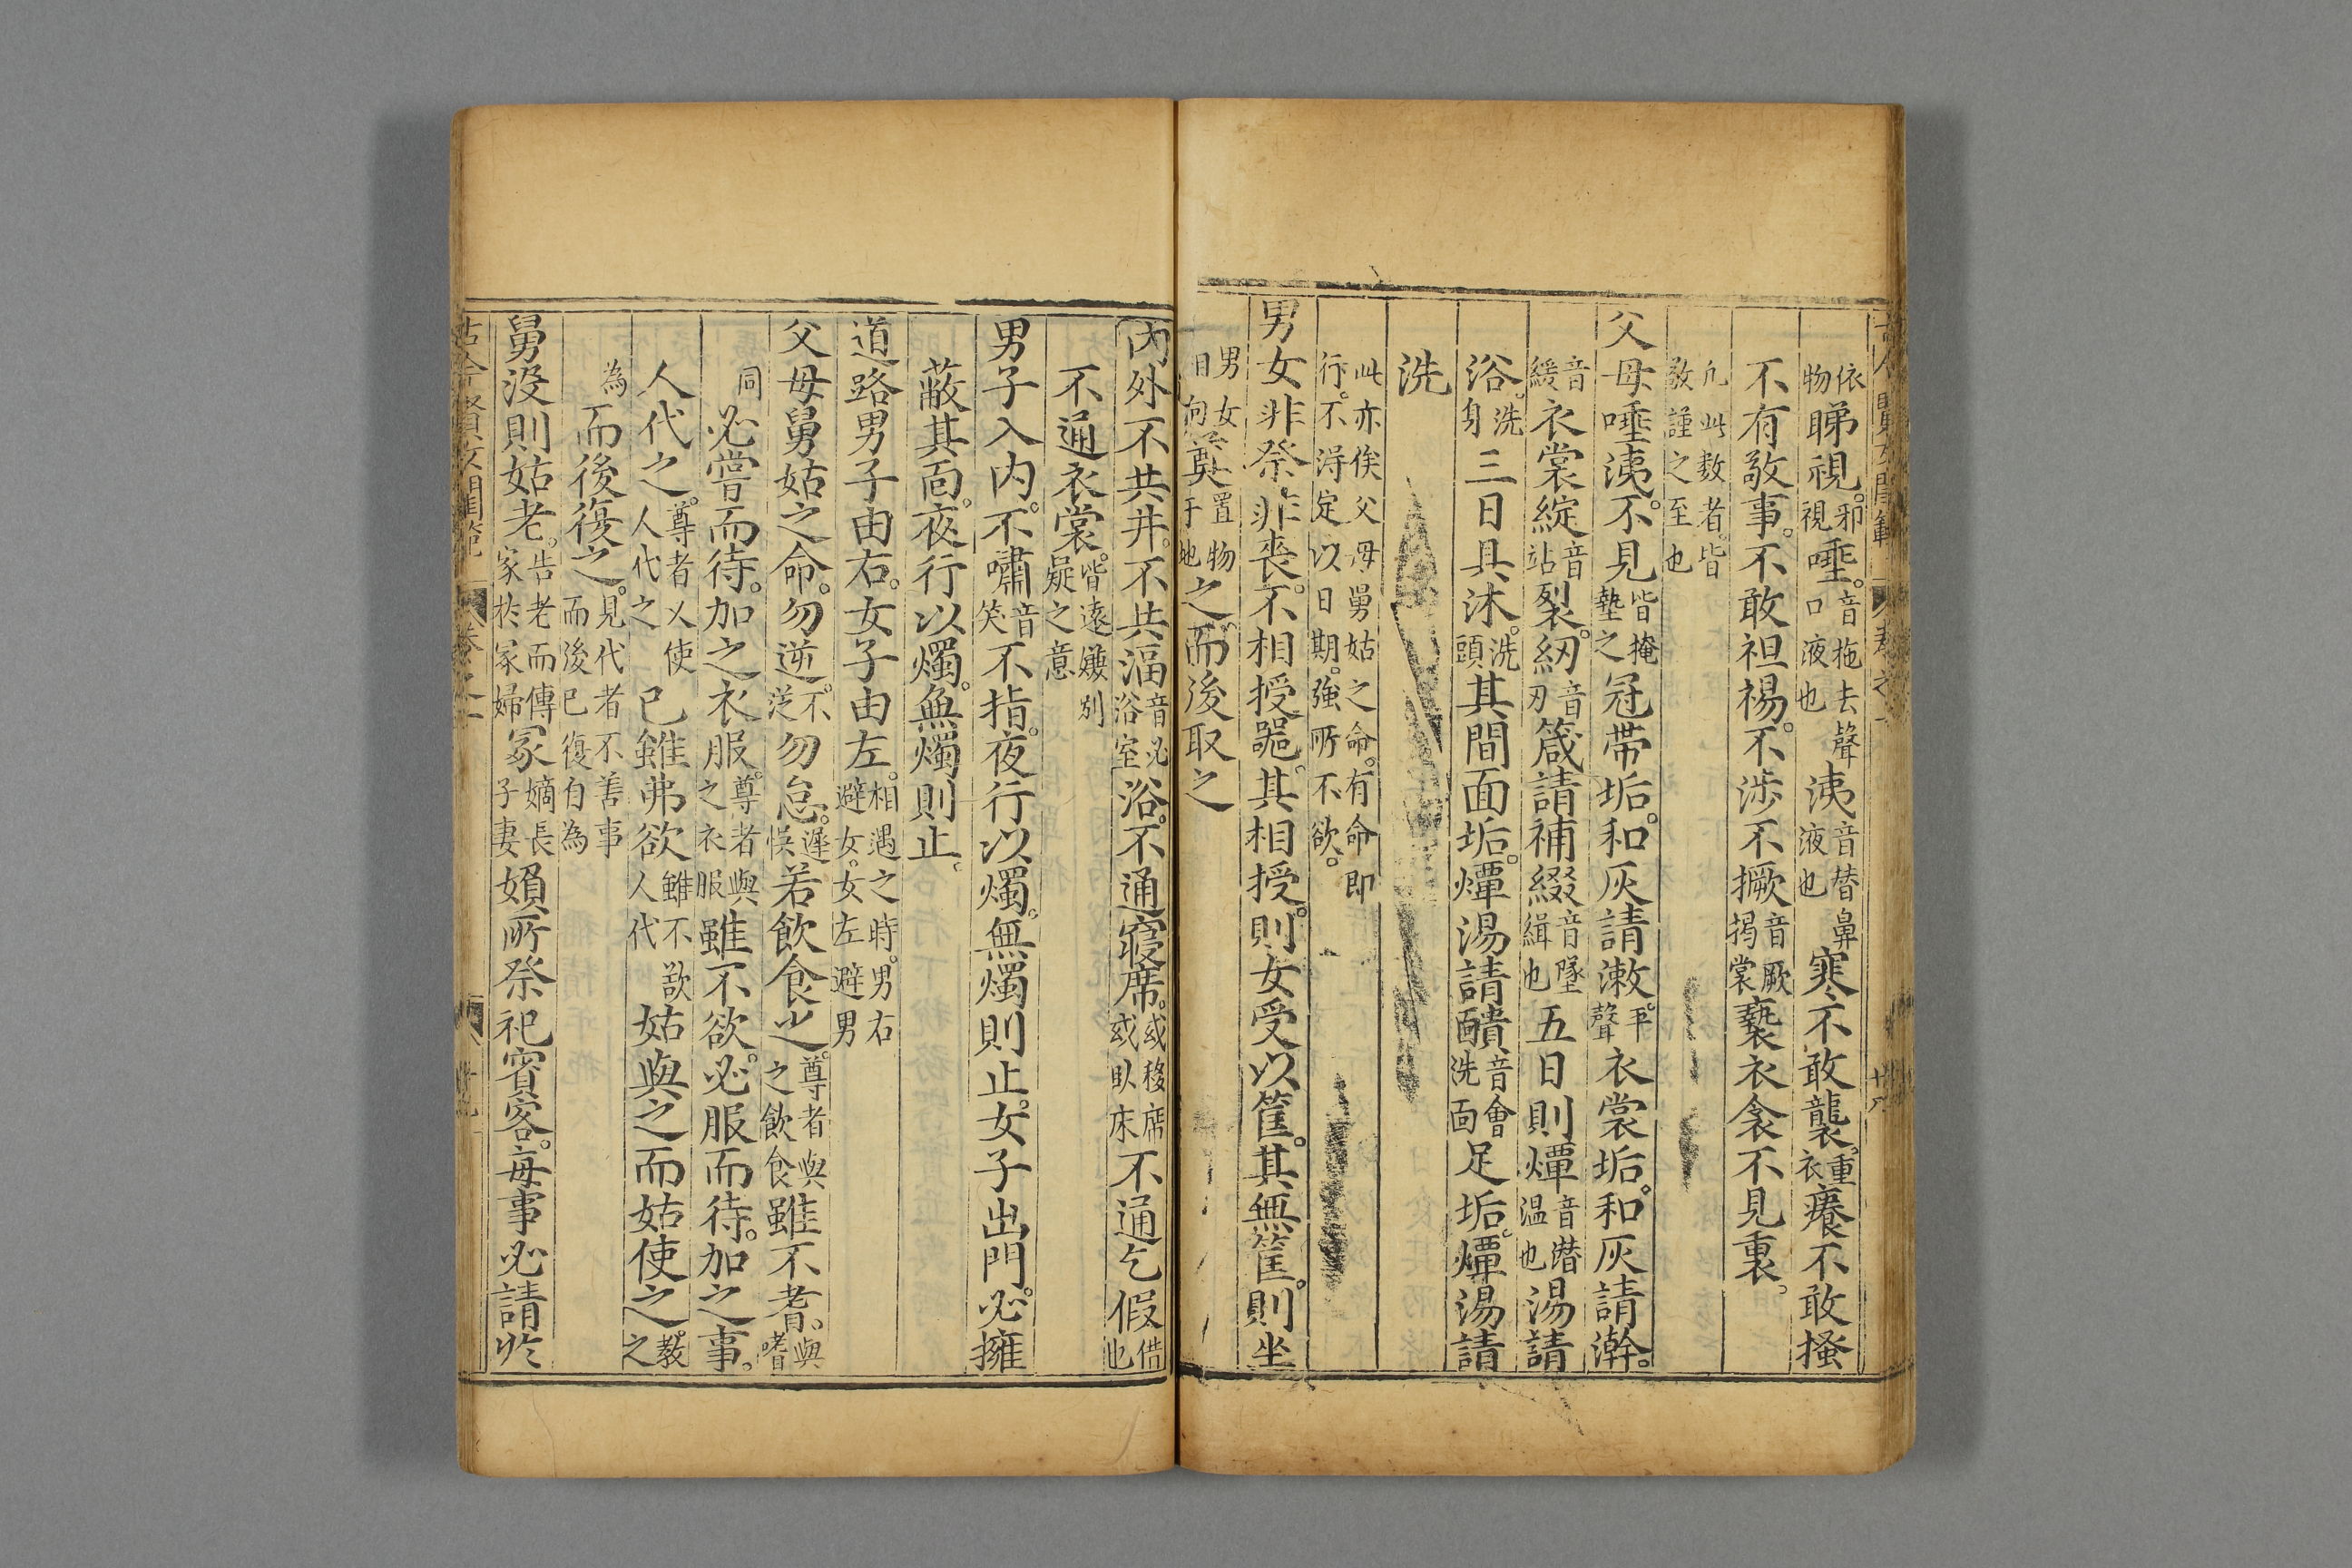 依物睇視邪視唾音拖去聲口液也洟音替鼻液也寒不敢襲重衣癢不敢搔
不有敬事不敢袒裼不涉不撅音厥揭裳褻衣衾不見裏
凡此数者皆敬謹之至也
父母唾洟不見皆掩墊之冠帶垢和灰請漱平聲衣裳垢和灰請澣
音緩衣裳綻音站裂紉音刃箴請補綴音墜緝也五日則燂音濳温也湯請
浴洗身三日具沐洗頭其間面垢燂湯請靧音會洗面足垢燂湯請
洗
此亦俟父母舅姑之命有命即行不得定以日期強所不欲
男女非祭非喪不相授器其相授則女受以筐其無筐則坐
男女奠置物于地之而後取之
內外不共井不共湢音必浴室浴不通寢席或移席或臥床不通乞假借也
不通衣裳皆遠嫌別疑之意
男子入内不嘯音笑不指夜行以燭無燭則止女子出門必擁
蔽其面夜行以燭無燭則止
道路男子由右女子由左相遇之時男右避女女左避男
父母舅姑之命勿逆不逆勿怠遲悞若飲食之尊者與之飲食雖不耆與嗜
同必嘗而待加之衣服尊者與之衣服雖不欲必服而待加之事
人代之尊者又使人代之己雖弗欲雖不欲人代姑與之而姑使之教之
為而後復之見代者不善事而後已復自為
舅没則姑老告老而傳家於冢婦冢嫡長子妻婦所祭祀賓客毎事必請於
古今賢女閨範
卷之一